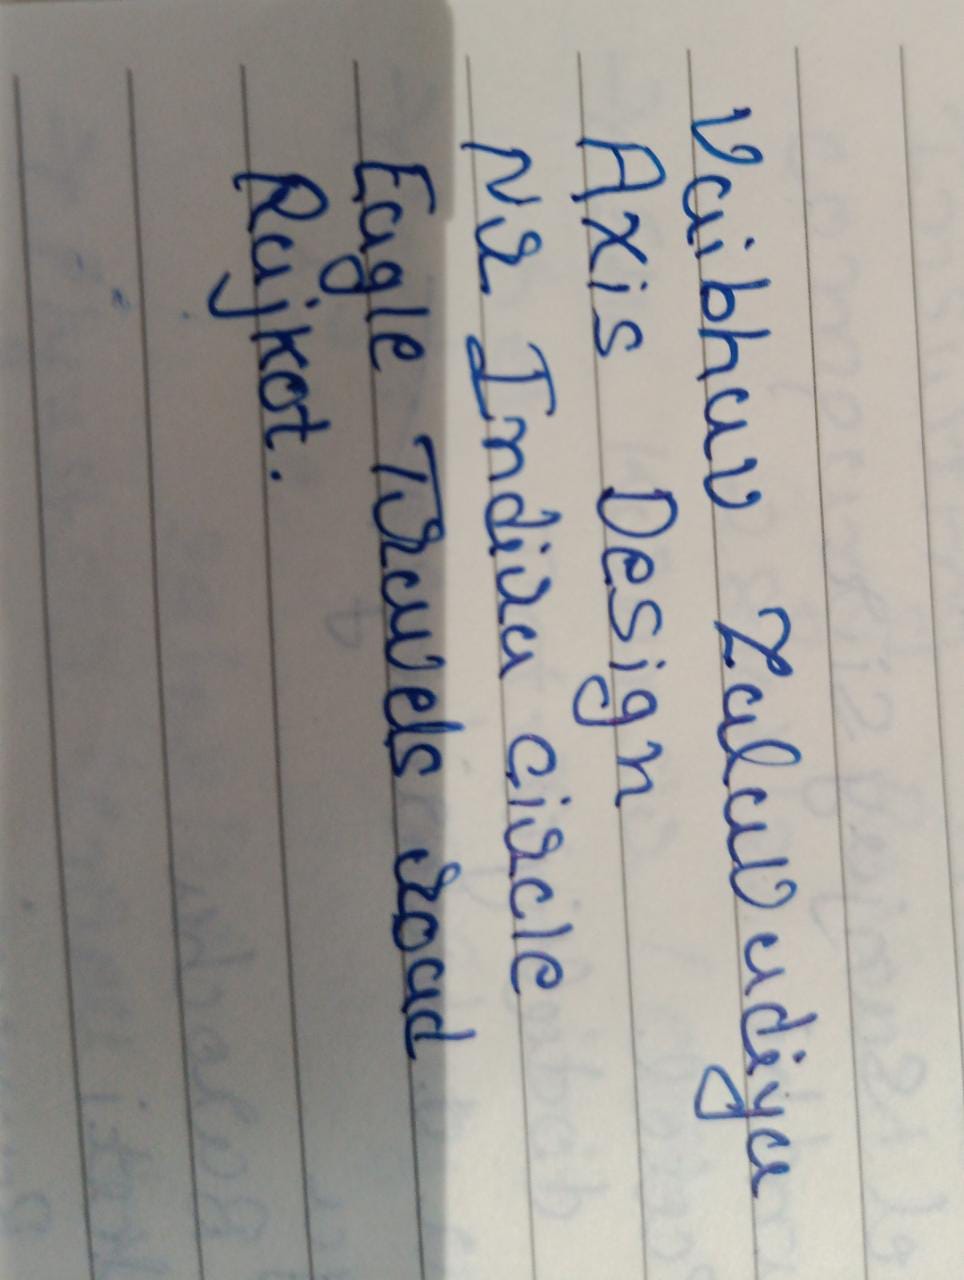 Vaibhav Zalavadiya
Axis Design
Nr Indira circle
Eagle Travels road
Rajkot.